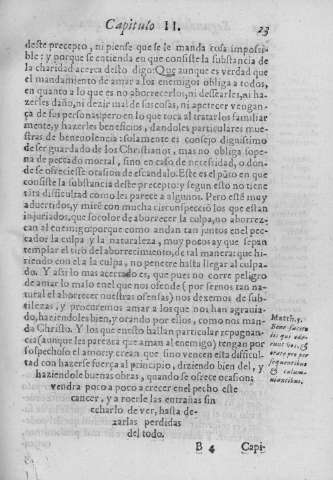 Capitulo II.
23
deste precepto, ni piense que se le manda cosa imposi-
ble: y porque se entienda en que consiste la substancia de
la charidad acerca desto digo: Que aunque es verdad que
el mandamiento de amar a los enemigos obliga a todos,
en quanto a lo que es no aborrecerlos, ni dessearles, ni ha-
zerles daño, ni dezir mal de sus cosas, ni apetecer vengan-
ça de sus personas: pero en lo que toca al tratarlos familiar
mente, y hazerles beneficios, dandoles particulares mues-
tras de beneuolencia: solamente es consejo dignissimo
de ser guardado de los Christianos, mas no obliga sope-
na de peccado mortal, sino en caso de necessidad, o don-
de se ofreciesse ocasion de escandalo. Este es el pũto en que
consiste la substancia deste precepto: y segun esto no tiene
tãta difficultad como les parece a algunos. Pero esté muy
aduertidos, y mirẽ con mucha circunspecciõ los que estan
injuriados, que so color de aborrecer la culpa, no aborrez-
can al enemigo: porque como andan tan juntos en el pec-
cador la culpa y la naturaleza, muy pocos ay que sepan
templar el tiro del aborrecimiento, de tal manera: que hi-
riendo con el a la culpa, no penetre hasta llegar al culpa-
do. Y assi lo mas acertado es, que pues no corre peligro
de amar lo malo en el que nos ofende (por sernos tan na-
tural el aborrecer nuestras ofensas) nos dexemos de sub-
tilezas, y procuremos amar a los que nos han agrauia-
do, haziendoles bien, y orando por ellos, como nos man-
da Christo. Y los que en esto hallan particular repugnan-
cia (aunque les parezca que aman al enemigo) tengan por
sospechoso el amor: y crean que sino vencen esta difficul-
tad con hazerse fuerça al principio, diziendo bien del, y
haziendole buenas obras, quando se ofrece ocasion;
vendra poco a poco a crecer en el pecho este
cancer, y a roerle las entrañas sin
echarlo de ver, hasta de-
xarlas perdidas
del todo.
Matth. 5.
Bene facite
iis qui oderunt vos, &
orate pro persequentibus
& calumniantibus.
B 4 Capi-